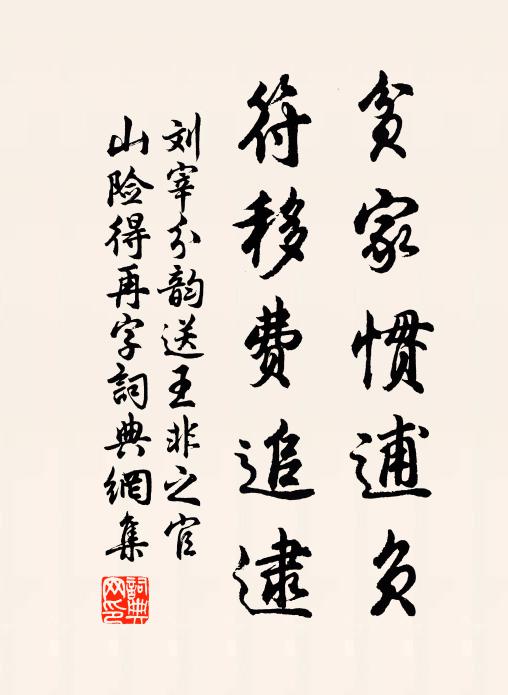 贫家惯逋负
符移费追逮
刘宰分韵送王非之官
山险得再字詞典網集
詞典網印